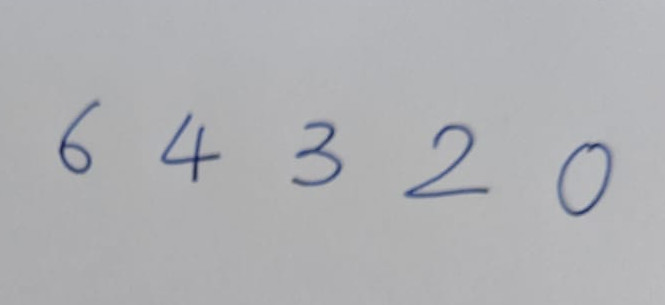 6 4 3 2 0